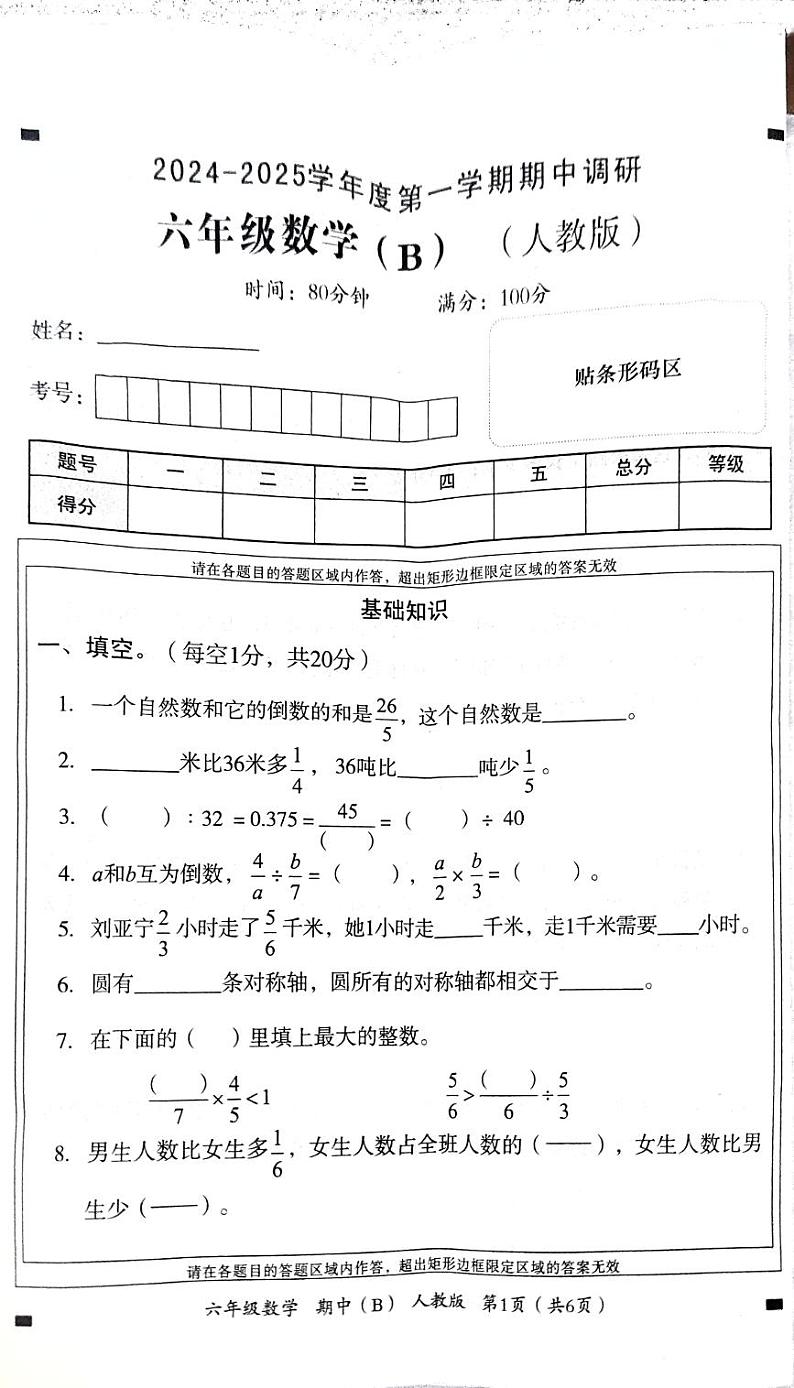 2024-2025学年度第一学期期中调研
六年级数学（B） （人教版）
时间：80分钟 满分：100分
姓名：
贴条形码区
考号：
题号 一 二 三 四 五 总分 等级
得分
请在各题目的答题区域内作答，超出矩形边框限定区域的答案无效
基础知识
一、填空。（每空1分，共20分）
1. 一个自然数和它的倒数的和是26/5，这个自然数是________。
2. ________米比36米多1/4，36吨比________吨少1/5。
3. （ ）：32 =0.375=45/（ ）=（ ）÷ 40
4. a和b互为倒数，4/a÷b/7=（ ），a/2×b/3=（ ）。
5. 刘亚宁2/3小时走了5/6千米，她1小时走____千米，走1千米需要____小时。
6. 圆有________条对称轴，圆所有的对称轴都相交于________。
7. 在下面的（ ）里填上最大的整数。
（ ）/7×4/5<1 5/6>（ ）/6÷5/3
8. 男生人数比女生多1/6，女生人数占全班人数的（——），女生人数比男
生少（——）。
请在各题目的答题区域内作答，超出矩形边框限定区域的答案无效
六年级数学 期中（B） 人教版 第1页（共6页）